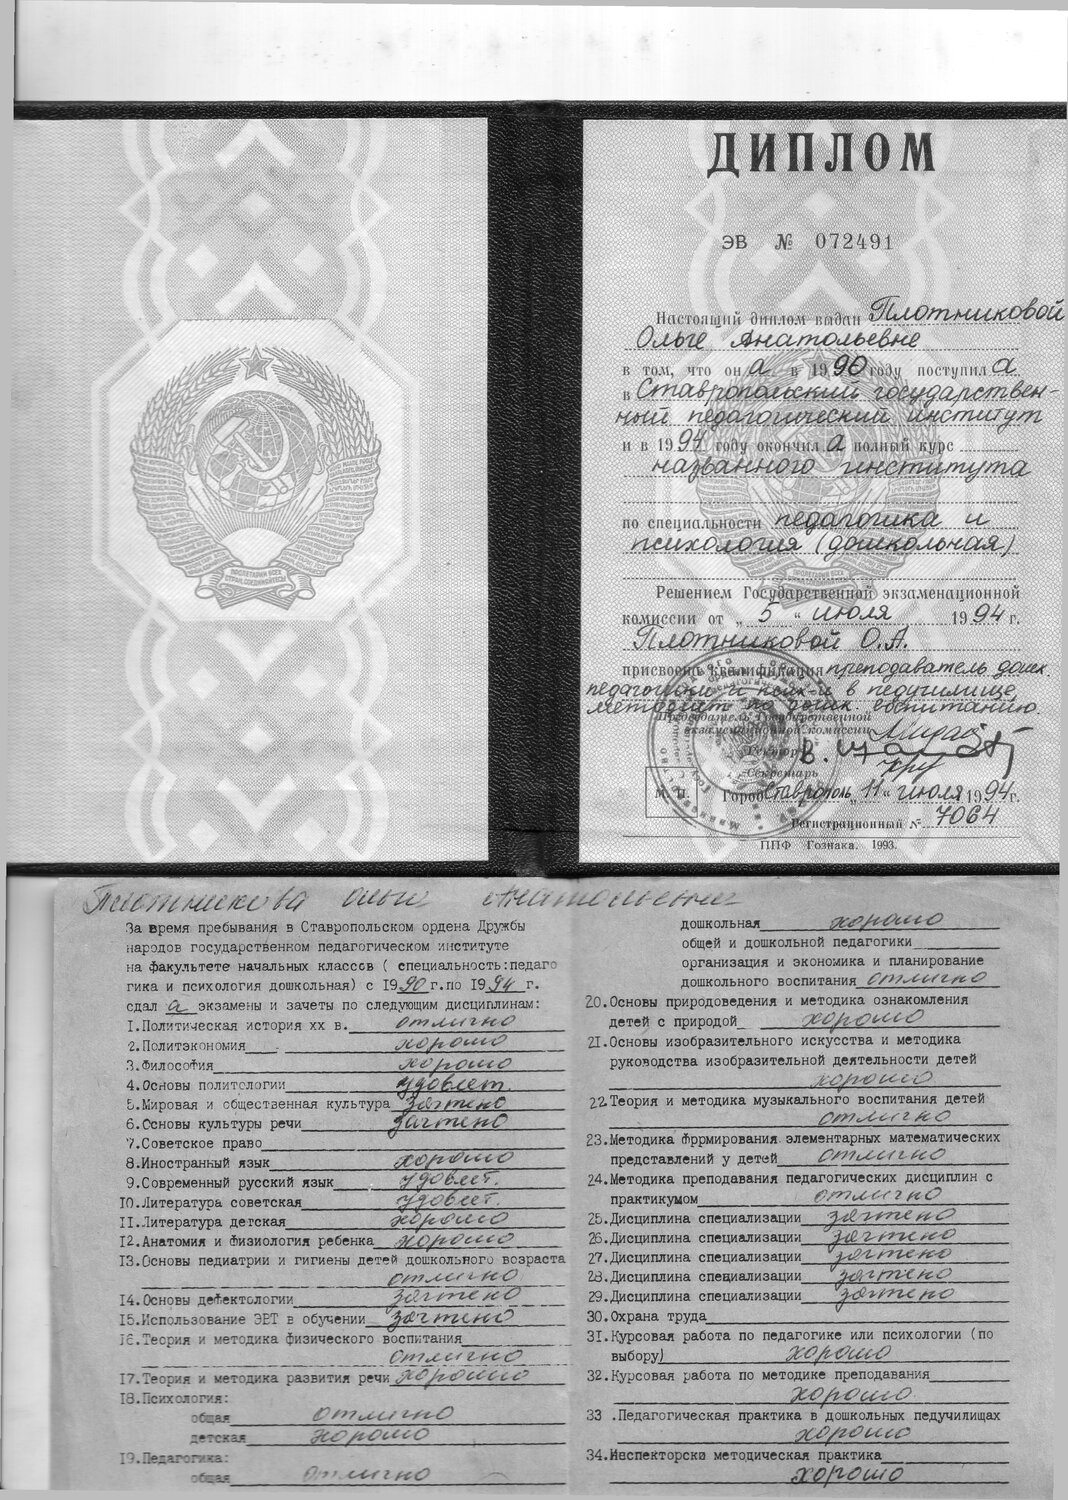 ПРОЛЕТАРИИ ВСЕХ
СТРАН, СОЕДИНЯЙТЕСЬ!
ДИПЛОМ
ЭВ № 072491
Настоящий диплом выдан Плотниковой
Ольге Анатольевне
в том, что он а в 1990 году поступил а
в Ставропольский государствен-
ный педагогический институт
и в 1994 году окончил а полный курс
названного института
по специальности педагогика и
психология (дошкольная)
Решением Государственной экзаменационной
комиссии от „ 5 “ июля 1994 г.
Плотниковой О.А.
присвоена квалификация преподаватель дошк.
педагогики и псих-и в педучилище,
методист по дошк. воспитанию.
Председатель Государственной
экзаменационной комиссии
Ректор
Секретарь
М. П. Город Ставрополь „ 11 “ июля 1994 г.
Регистрационный № 7064
ППФ Гознака. 1993.
Плотникова Ольга Анатольевна
За время пребывания в Ставропольском ордена Дружбы
народов государственном педагогическом институте
на факультете начальных классов ( специальность:педаго
гика и психология дошкольная) с 1990 г.по 1994 г.
сдал а экзамены и зачеты по следующим дисциплинам:
1.Политическая история хх в. отлично
2.Политэкономия хорошо
3.Философия хорошо
4.Основы политологии удовлет.
5.Мировая и общественная культура зачтено
6.Основы культуры речи зачтено
7.Советское право
8.Иностранный язык хорошо
9.Современный русский язык удовлет.
10.Литература советская удовлет.
11.Литература детская хорошо
12.Анатомия и физиология ребенка хорошо
13.Основы педиатрии и гигиены детей дошкольного возраста
отлично
14.Основы дефектологии зачтено
15.Использование ЭВТ в обучении зачтено
16.Теория и методика физического воспитания
отлично
17.Теория и методика развития речи хорошо
18.Психология:
общая отлично
детская хорошо
19.Педагогика:
общая отлично
дошкольная хорошо
общей и дошкольной педагогики
организация и экономика и планирование
дошкольного воспитания отлично
20.Основы природоведения и методика ознакомления
детей с природой хорошо
21.Основы изобразительного искусства и методика
руководства изобразительной деятельности детей
хорошо
22.Теория и методика музыкального воспитания детей
отлично
23.Методика фррмирования элементарных математических
представлений у детей отлично
24.Методика преподавания педагогических дисциплин с
практикумом отлично
25.Дисциплина специализации зачтено
26.Дисциплина специализации зачтено
27.Дисциплина специализации зачтено
28.Дисциплина специализации зачтено
29.Дисциплина специализации зачтено
30.Охрана труда
31.Курсовая работа по педагогике или психологии (по
выбору) хорошо
32.Курсовая работа по методике преподавания
хорошо
33 .Педагогическая практика в дошкольных педучилищах
хорошо
34.Инспекторско методическая практика
хорошо